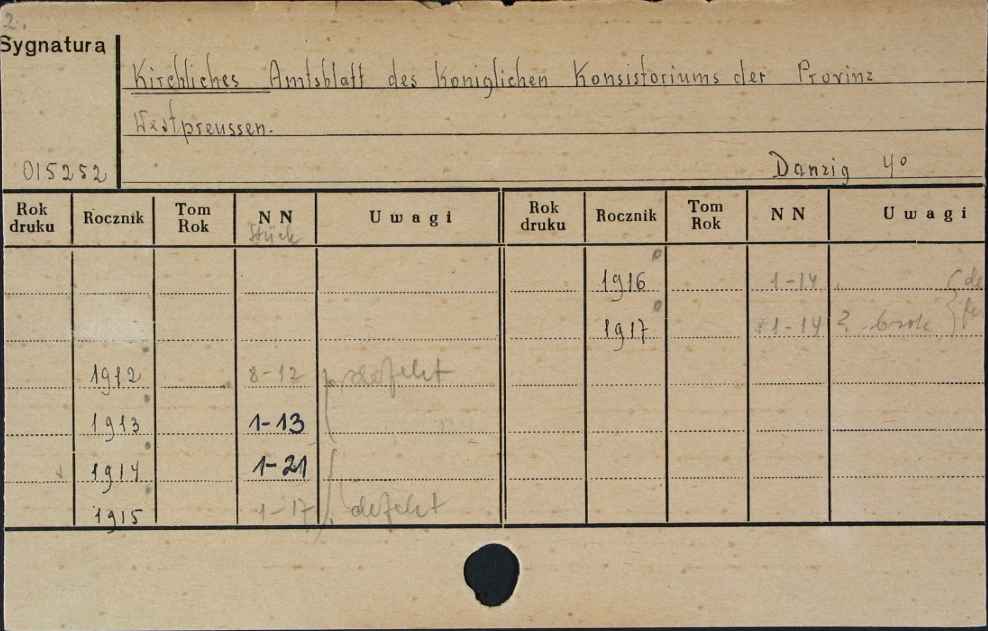 2.
Sygnatura
Kirchliches Amtsblatt des Königlichen Konsistoriums der Provinz
Westpreussen.
015252
Danzig 4°
Rok druku Rocznik Tom Rok NN Uwagi Rok druku Rocznik Tom Rok NN Uwagi
Stück
1916 1-14
1917 1-14 2 brak
1912 8-12 defekt
1913 1-13
1914 1-21
1915 1-17 defekt